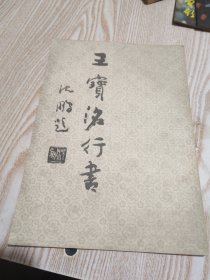 王寶洺行書
沈鵬題